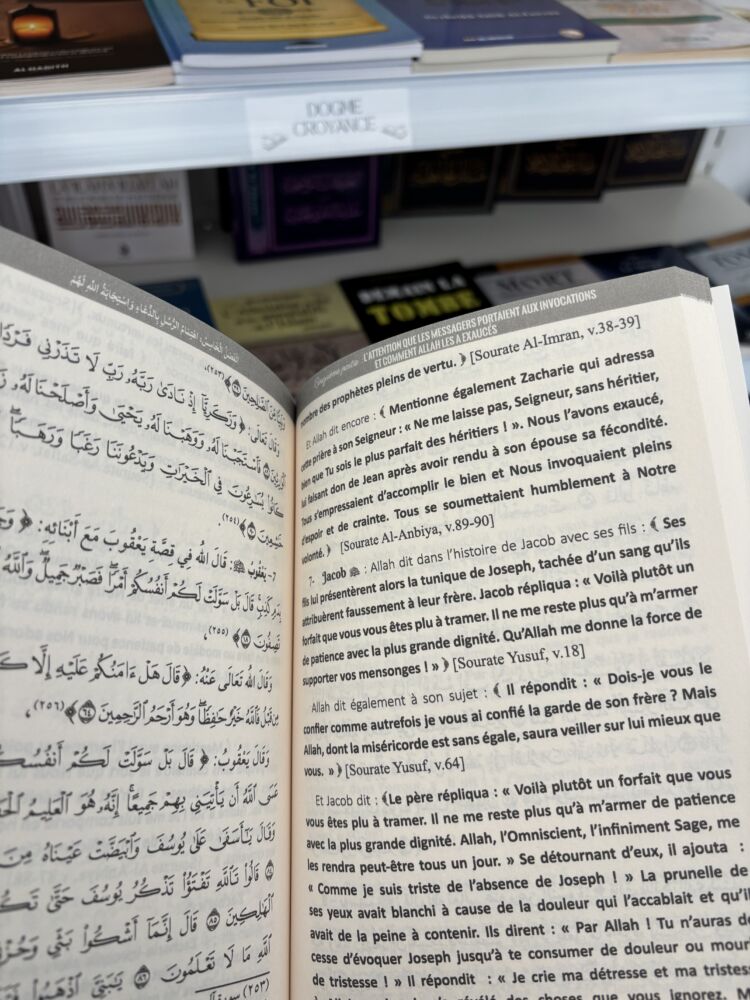 AL-HADITH
FOI
DOGME
CROYANCE
DEMAIN LA
TOMBE
MORT
الفصل الخامس: اهتمام الرسل بالدعاء واستجابة الله لهم
Cinquième partie : L'ATTENTION QUE LES MESSAGERS PORTAIENT AUX INVOCATIONS
ET COMMENT ALLAH LES A EXAUCÉS
وَقَالَ تَعَالَى: ﴿ وَزَكَرِيَّا إِذْ نَادَىٰ رَبَّهُ رَبِّ لَا تَذَرْنِي فَرْدًا
فَاسْتَجَبْنَا لَهُ وَوَهَبْنَا لَهُ يَحْيَىٰ وَأَصْلَحْنَا لَهُ
كَانُوا يُسَارِعُونَ فِي الْخَيْرَاتِ وَيَدْعُونَنَا رَغَبًا وَرَهَبًا
٧- يعقوب ﷺ: قال الله في قصة يعقوب مع أبنائه: ﴿
بِدَمٍ كَذِبٍ قَالَ بَلْ سَوَّلَتْ لَكُمْ أَنفُسُكُمْ أَمْرًا فَصَبْرٌ جَمِيلٌ وَاللَّهُ
تَصِفُونَ ١٨ ﴾(٢٥٥)،
وقال الله تعالى عنه: ﴿ قَالَ هَلْ آمَنُكُمْ عَلَيْهِ إِلَّا
مِن قَبْلُ فَاللَّهُ خَيْرٌ حَافِظًا وَهُوَ أَرْحَمُ الرَّاحِمِينَ ٦٤ ﴾(٢٥٦)،
وقال يعقوب: ﴿ قَالَ بَلْ سَوَّلَتْ لَكُمْ
عَسَى اللَّهُ أَن يَأْتِيَنِي بِهِمْ جَمِيعًا إِنَّهُ هُوَ الْعَلِيمُ
وَقَالَ يَا أَسَفَىٰ عَلَىٰ يُوسُفَ وَابْيَضَّتْ عَيْنَاهُ مِنَ
قَالُوا تَاللَّهِ تَفْتَأُ تَذْكُرُ يُوسُفَ حَتَّىٰ
الْهَالِكِينَ ٨٥ قَالَ إِنَّمَا أَشْكُو بَثِّي
اللَّهِ مَا لَا تَعْلَمُونَ ٨٦ يَا بَنِيَّ اذْهَبُوا
nombre des prophètes pleins de vertu. ⦄ [Sourate Al-Imran, v.38-39]
Et Allah dit encore : ⦃ Mentionne également Zacharie qui adressa
cette prière à son Seigneur : « Ne me laisse pas, Seigneur, sans héritier,
bien que Tu sois le plus parfait des héritiers ! ». Nous l'avons exaucé,
lui faisant don de Jean après avoir rendu à son épouse sa fécondité.
Tous s'empressaient d'accomplir le bien et Nous invoquaient pleins
d'espoir et de crainte. Tous se soumettaient humblement à Notre
volonté. ⦄ [Sourate Al-Anbiya, v.89-90]
7- Jacob ﷺ : Allah dit dans l'histoire de Jacob avec ses fils : ⦃ Ses
fils lui présentèrent alors la tunique de Joseph, tachée d'un sang qu'ils
attribuèrent faussement à leur frère. Jacob répliqua : « Voilà plutôt un
forfait que vous vous êtes plu à tramer. Il ne me reste plus qu'à m'armer
de patience avec la plus grande dignité. Qu'Allah me donne la force de
supporter vos mensonges ! » ⦄ [Sourate Yusuf, v.18]
Allah dit également à son sujet : ⦃ Il répondit : « Dois-je vous le
confier comme autrefois je vous ai confié la garde de son frère ? Mais
Allah, dont la miséricorde est sans égale, saura veiller sur lui mieux que
vous. » ⦄ [Sourate Yusuf, v.64]
Et Jacob dit : ⦃Le père répliqua : « Voilà plutôt un forfait que vous
vous êtes plu à tramer. Il ne me reste plus qu'à m'armer de patience
avec la plus grande dignité. Allah, l'Omniscient, l'infiniment Sage, me
les rendra peut-être tous un jour. » Se détournant d'eux, il ajouta :
« Comme je suis triste de l'absence de Joseph ! » La prunelle de
ses yeux avait blanchi à cause de la douleur qui l'accablait et qu'il
avait de la peine à contenir. Ils dirent : « Par Allah ! Tu n'auras de
cesse d'évoquer Joseph jusqu'à te consumer de douleur ou mour
de tristesse ! » Il répondit : « Je crie ma détresse et ma tristes
des choses que vous ignorez. M